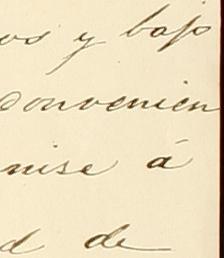 os y bajo
convenien
nise á
d de